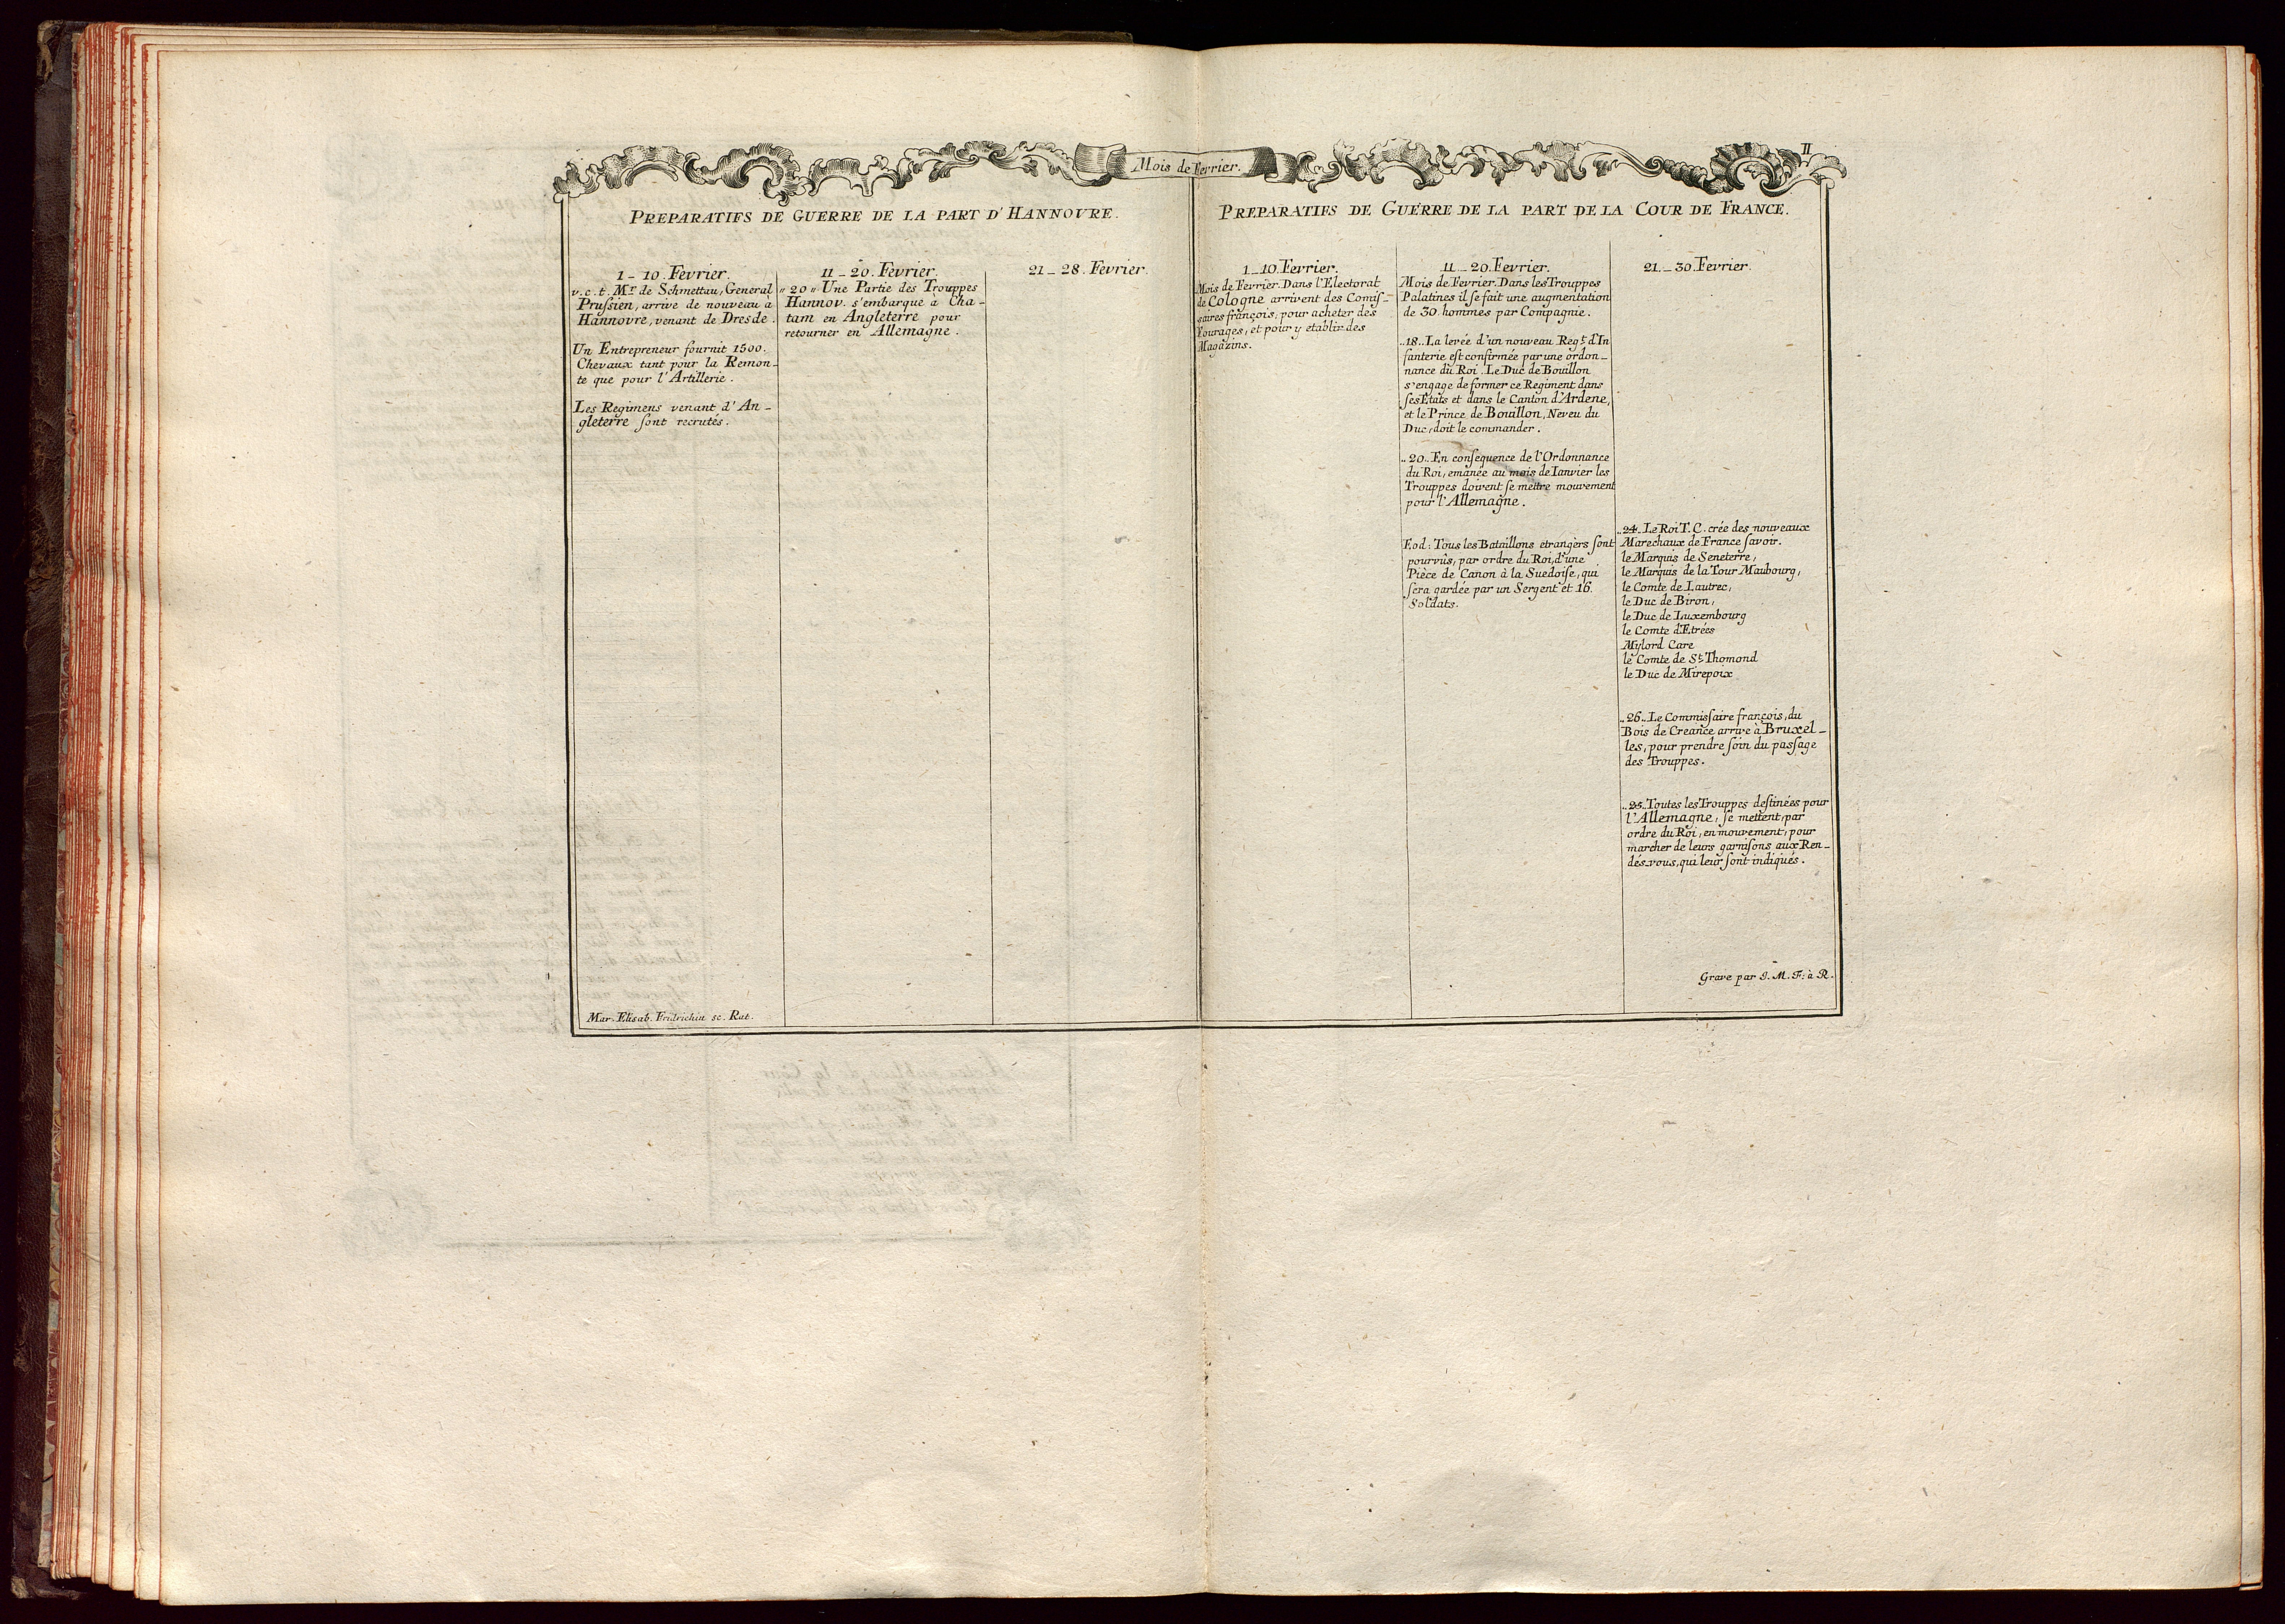 II
Mois de Fevrier.
PREPARATIFS DE GUERRE DE LA PART D'HANNOVRE.
1_10. Fevrier.
v.c.t. Mr. de Schmettau, General
Prussien, arrive de nouveau à
Hannovre, venant de Dresde.
Un Entrepreneur fournit 1500.
Chevaux tant pour la Remon_
te que pour l'Artillerie.
Les Regimens venant d'An_
gleterre sont recrutés.
11_20. Fevrier.
"20" Une Partie des Trouppes
Hannov. s'embarque à Cha_
tam en Angleterre pour
retourner en Allemagne.
21_28. Fevrier.
Mar. Elisab. Fridrichin sc. Rat.
PREPARATIFS DE GUERRE DE LA PART DE LA COUR DE FRANCE.
1_10. Fevrier.
Mois de Fevrier. Dans l'Electorat
de Cologne arrivent des Comis_
saires françois, pour acheter des
Fourages, et pour y etablir des
Magazins.
11_20. Fevrier.
Mois de Fevrier. Dans les Trouppes
Palatines il se fait une augmentation
de 30. hommes par Compagnie.
..18.. La levée d'un nouveau Regt. d'In
fanterie est confirmée par une ordon_
nance du Roi. Le Duc de Bouillon
s'engage de former ce Regiment dans
ses Etats et dans le Canton d'Ardene,
et le Prince de Bouillon, Neveu du
Duc, doit le commander.
..20.. En consequence de l'Ordonnance
du Roi, emanée au mois de Ianvier les
Trouppes doivent se mettre mouvement
pour l'Allemagne.
Eod: Tous les Bataillons etrangèrs sont
pourvûs, par ordre du Roi, d'une
Pièce de Canon à la Suedoise, qui
sera gardée par un Sergent et 16.
Soldats.
21_30. Fevrier.
..24.. Le Roi T. C. crée des nouveaux
Marechaux de France savoir.
le Marquis de Seneterre,
le Marquis de la Tour Maubourg,
le Comte de Lautrec,
le Duc de Biron,
le Duc de Luxembourg
le Comte d'Etrées
Mylord Care
le Comte de St. Thomond
le Duc de Mirepoix
..26.. Le Commissaire françois, du
Bois de Creance arrive à Bruxel_
les, pour prendre soin du passage
des Trouppes.
..25.. Toutes les Trouppes destinées pour
l'Allemagne, se mettent, par
ordre du Roi, en mouvement, pour
marcher de leurs garnisons aux Ren_
dés_vous, qui leur sont indiqués.
Grave par J. M. F: à R.